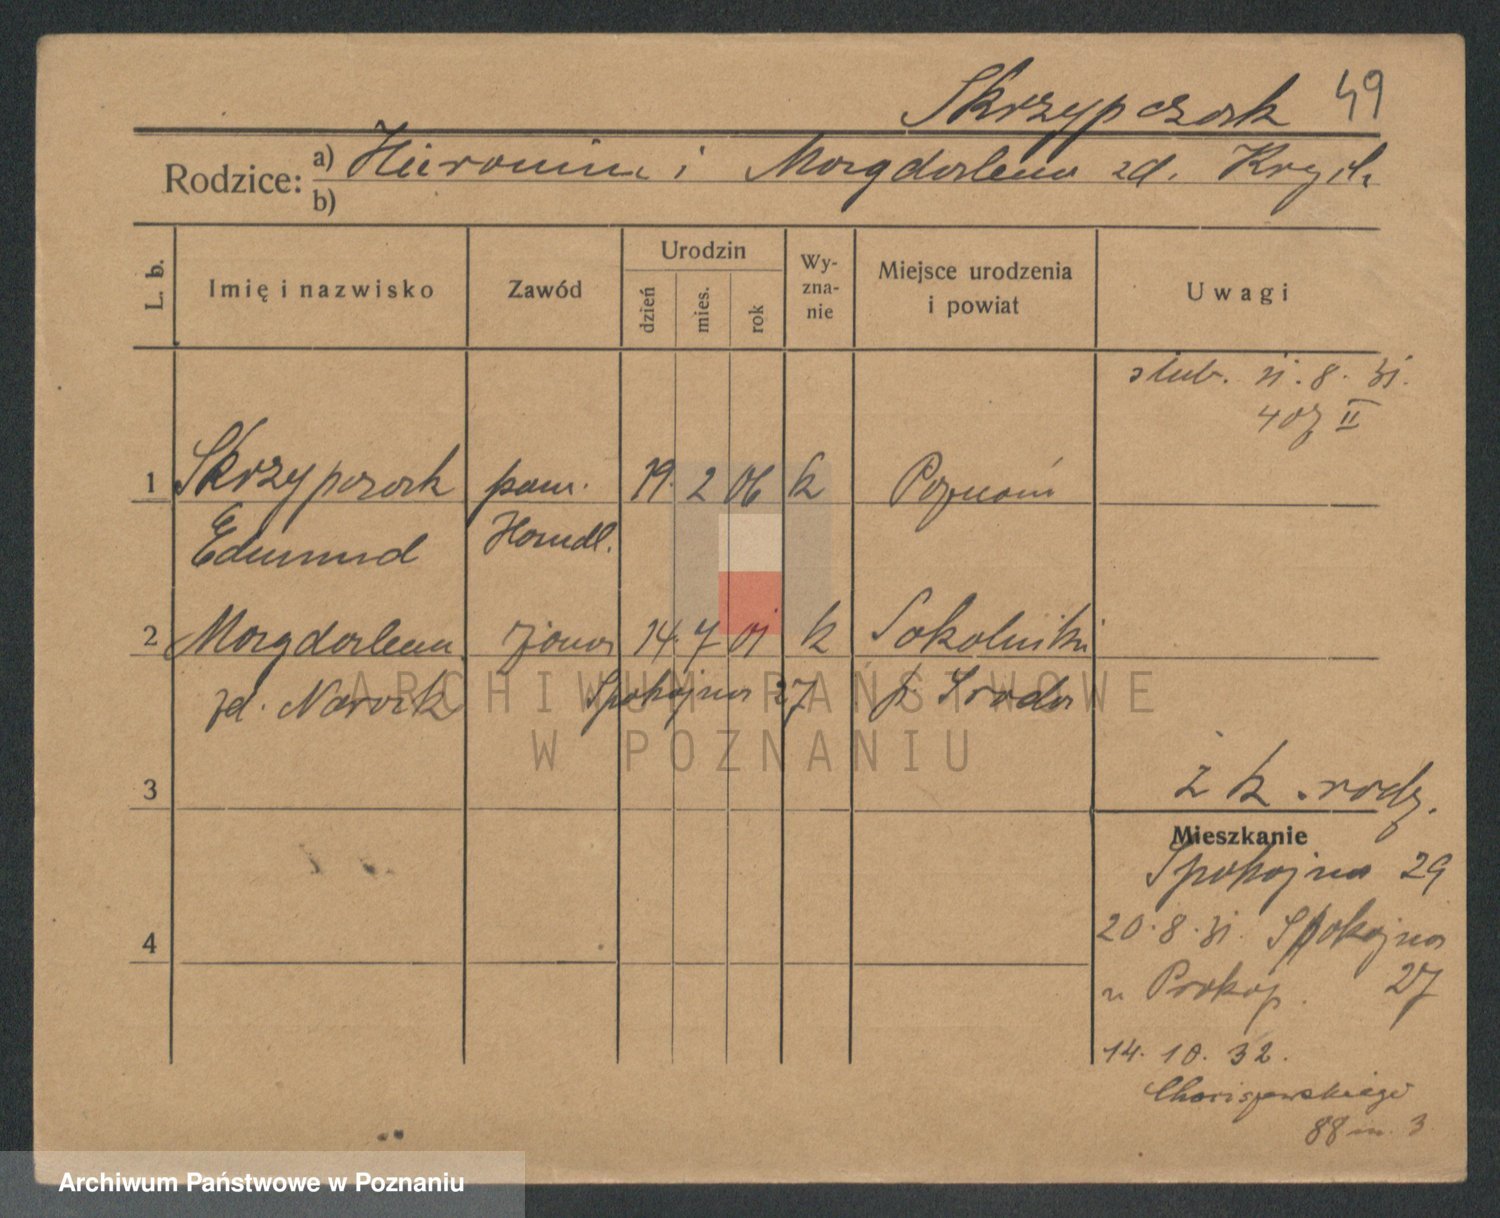 Skrzypczak 49
Rodzice: a) Hieronim i Magdalena zd. Krych
b)
L. b. Imię i nazwisko Zawód Urodzin dzień mies. rok Wyznanie Miejsce urodzenia i powiat Uwagi
ślub. 11.8.31.
407 II
1 Skrzypczak pom. 19. 2 06 k Poznań
Edmund Handl.
2 Magdalena żona 14. 7 01 k Sokolniki
zd. Nowak Spokojna 27 p. Środa
ż k. rodz.
3
Mieszkanie
Spokojna 29
20.8.31. Spokojna
4
u Prokop. 27
14. 10. 32.
88 m. 3
ARCHIWUM PAŃSTWOWE
W POZNANIU
Archiwum Państwowe w Poznaniu